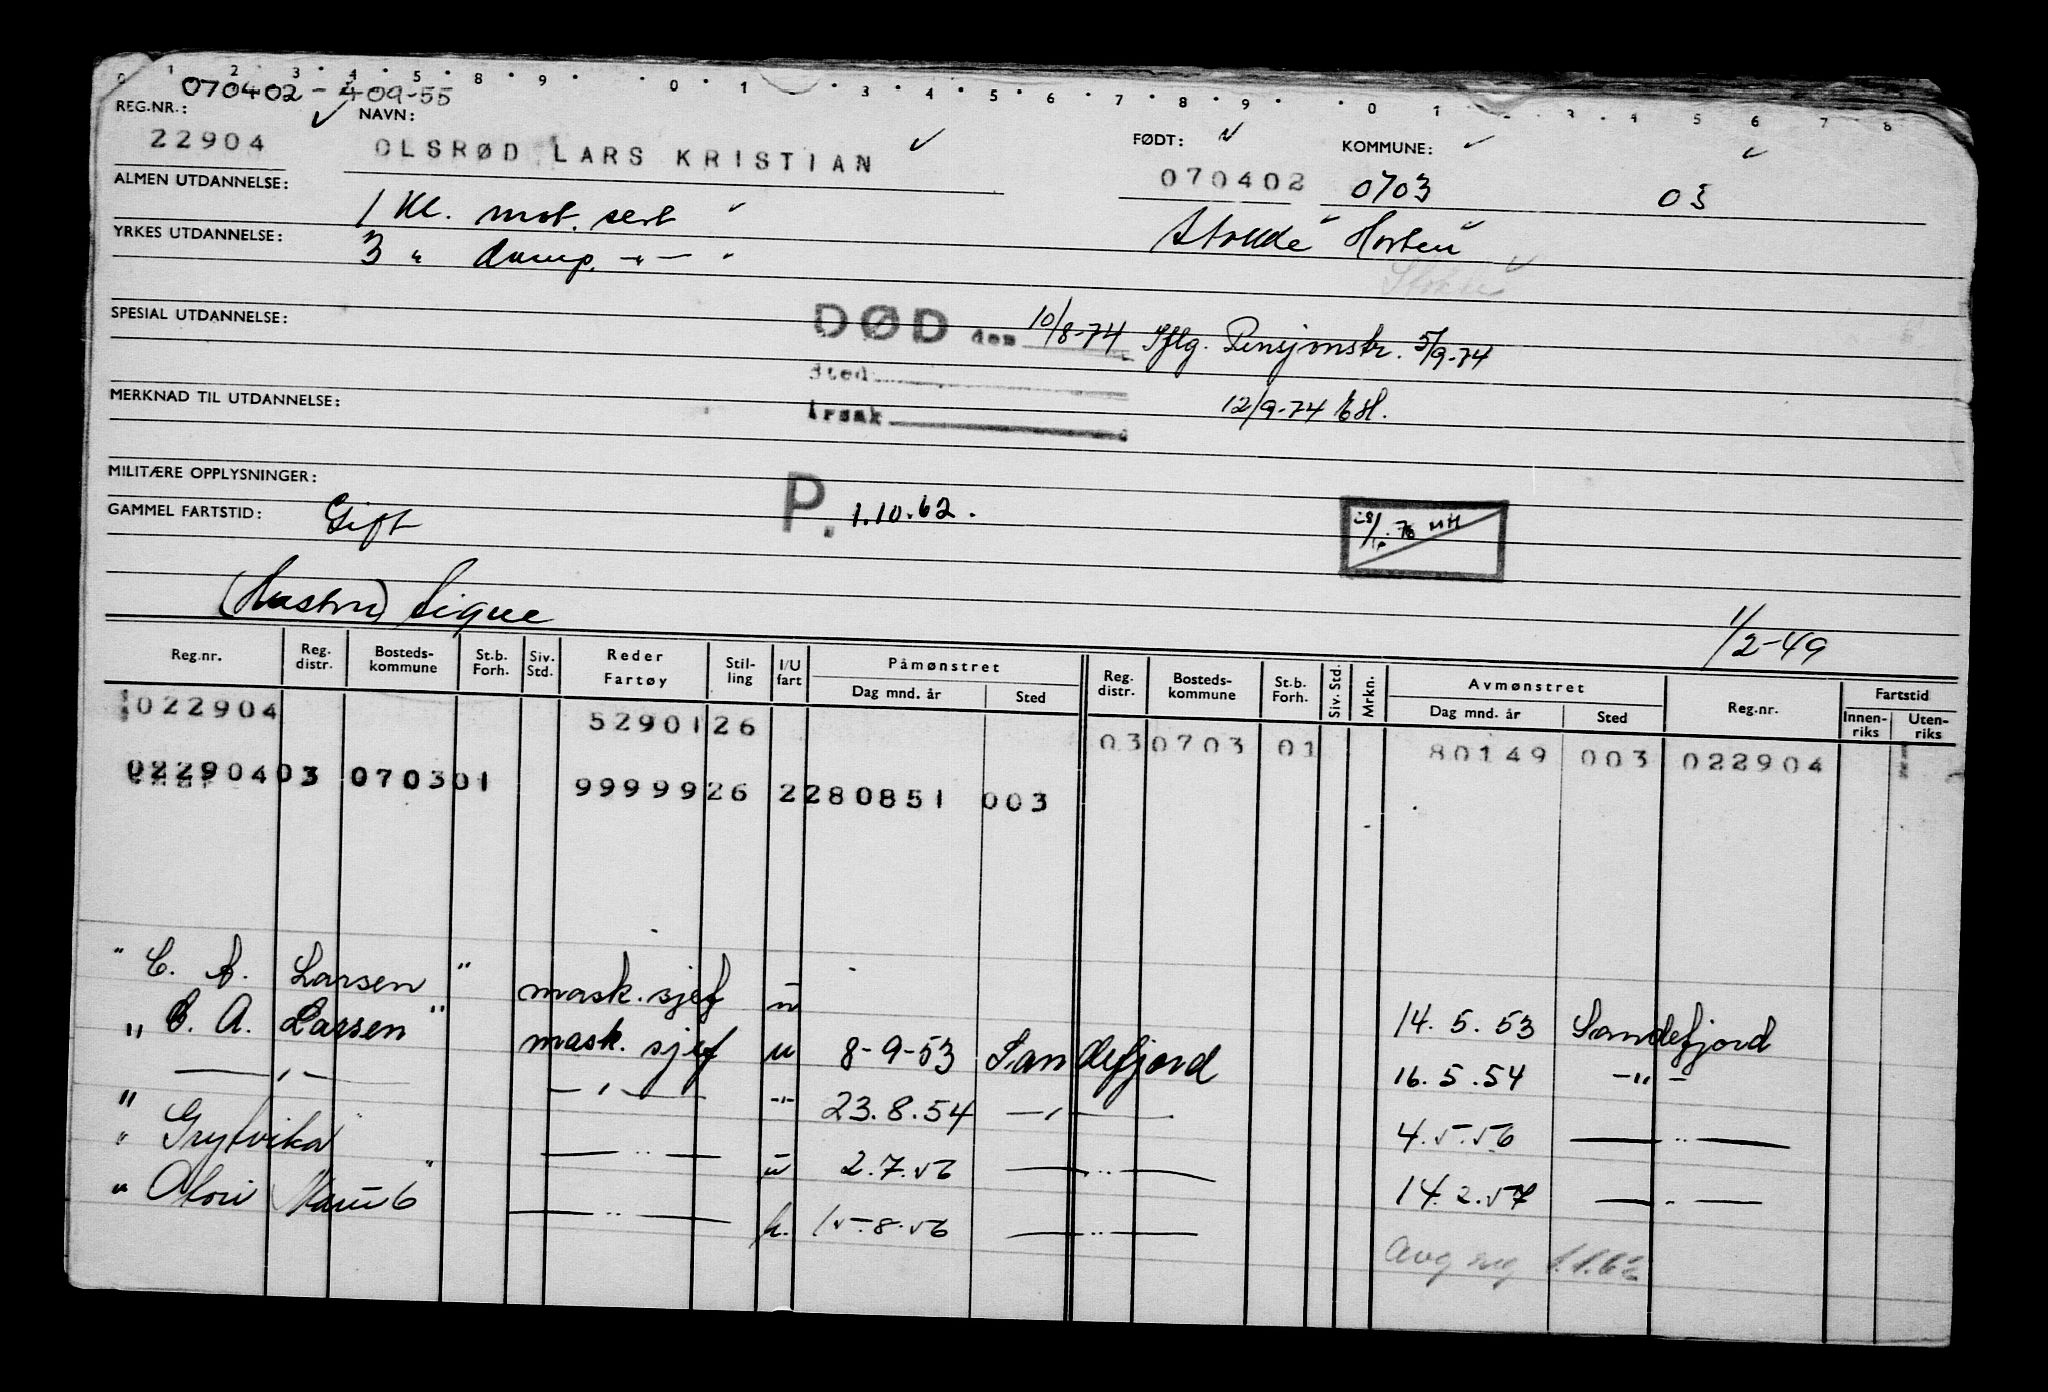 0 1 2 3 4 5 8 9 0 1 3 4 5 6 7 8 9 0 1 3 4 5 6 7 8
070402 - 409-55
REG.NR.: NAVN: FØDT: KOMMUNE:
22904 OLSRØD LARS KRISTIAN 070402 0703 03
ALMEN UTDANNELSE: 1 Kl. mot. sert Stokke Horten
YRKES UTDANNELSE: 3 " damp. -"- Stokke
SPESIAL UTDANNELSE: DØD den 10/8-74 Iflg. Pensjonstr. 5/9-74
Sted
MERKNAD TIL UTDANNELSE: Årsak 12/9-74
MILITÆRE OPPLYSNINGER:
GAMMEL FARTSTID: Gift P. 1.10.62. 76 MH
(Hustru) Signe 1/2-49
Reg.nr. Reg. distr. Bosteds-kommune St.b. Forh. Siv. Std. Reder Fartøy Stil-ling I/U fart Påmønstret Dag mnd. år Sted Reg. distr. Bosteds-kommune St.b. Forh. Siv. Std. Mrkn. Avmønstret Dag mnd. år Sted Reg.nr. Fartstid Innen-riks Uten-riks
022904 5290126 03 0703 01 80149 003 022904
02290403 070301 9999926 2280851 003
" C. A. Larsen " mask. sjef u 14. 5. 53 Sandefjord
" C. A. Larsen " mask. sjef u 8-9-53 Sandefjord 16. 5. 54 -"-
" -"- -"- -"- 23. 8. 54 -"- 4. 5. 56 -"-
" Grytvika -"- u 2. 7. 56 -"- 14. 2. 57 -"-
" -"- h. 15-8-56 -"-
Avg reg 1.1.62